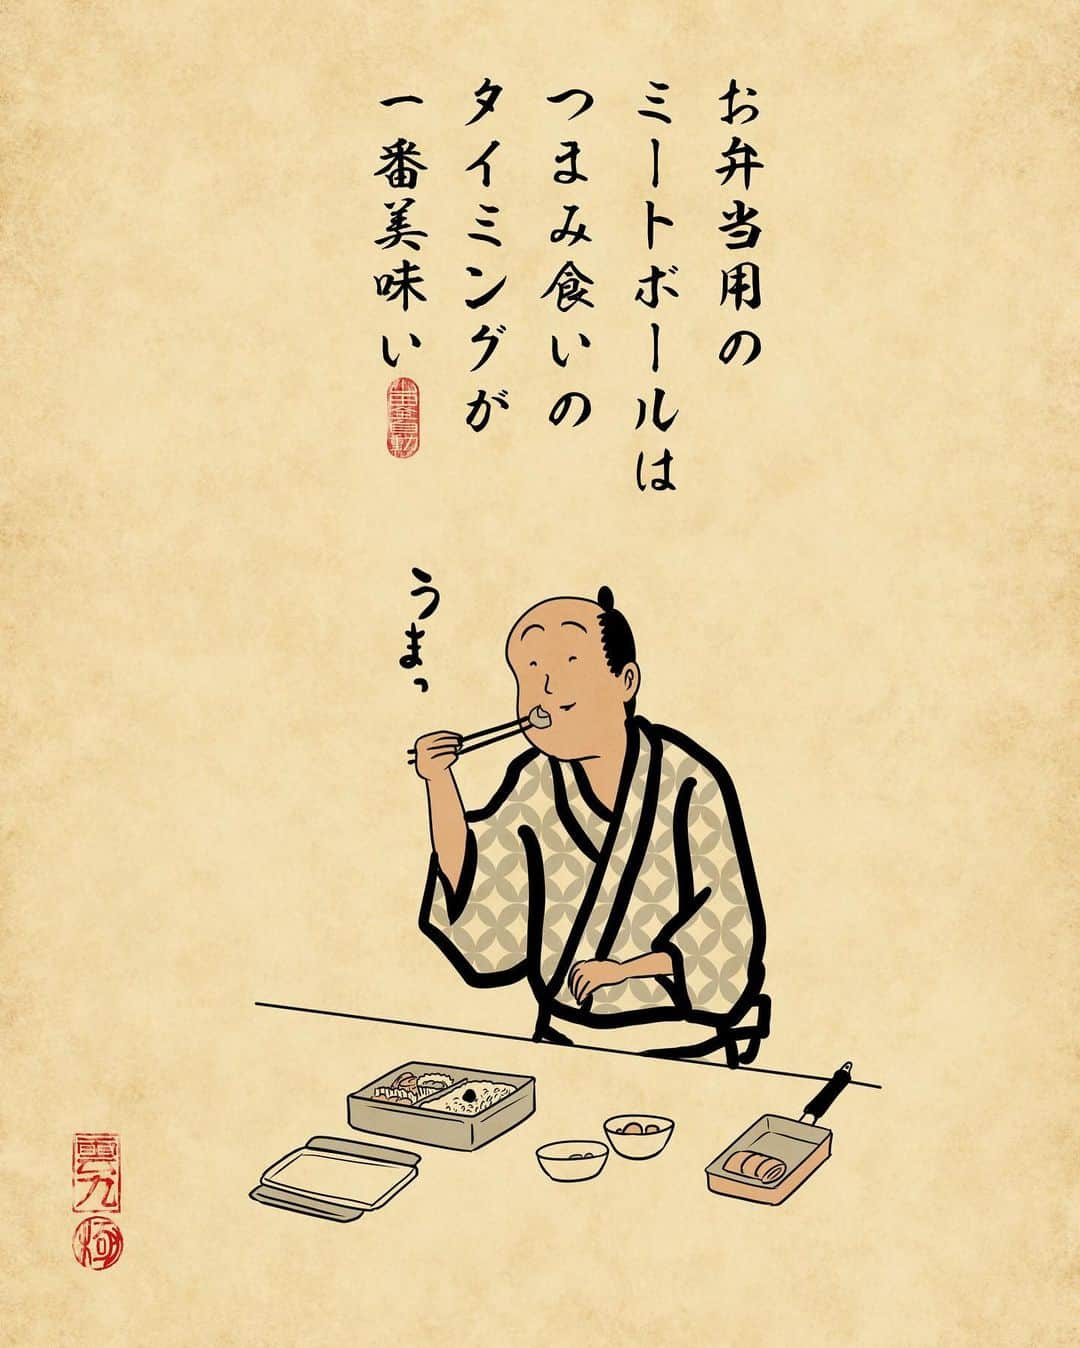 お弁当用の
ミートボールは
つまみ食いの
タイミングが
一番美味い
うまっ